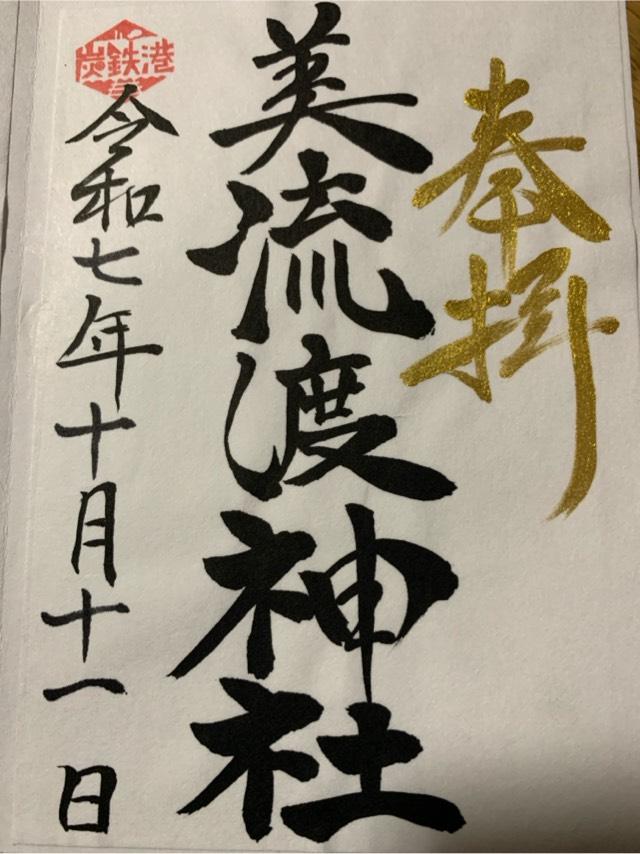 奉拝
美流渡神社
炭鉄港
令和七年十月十一日